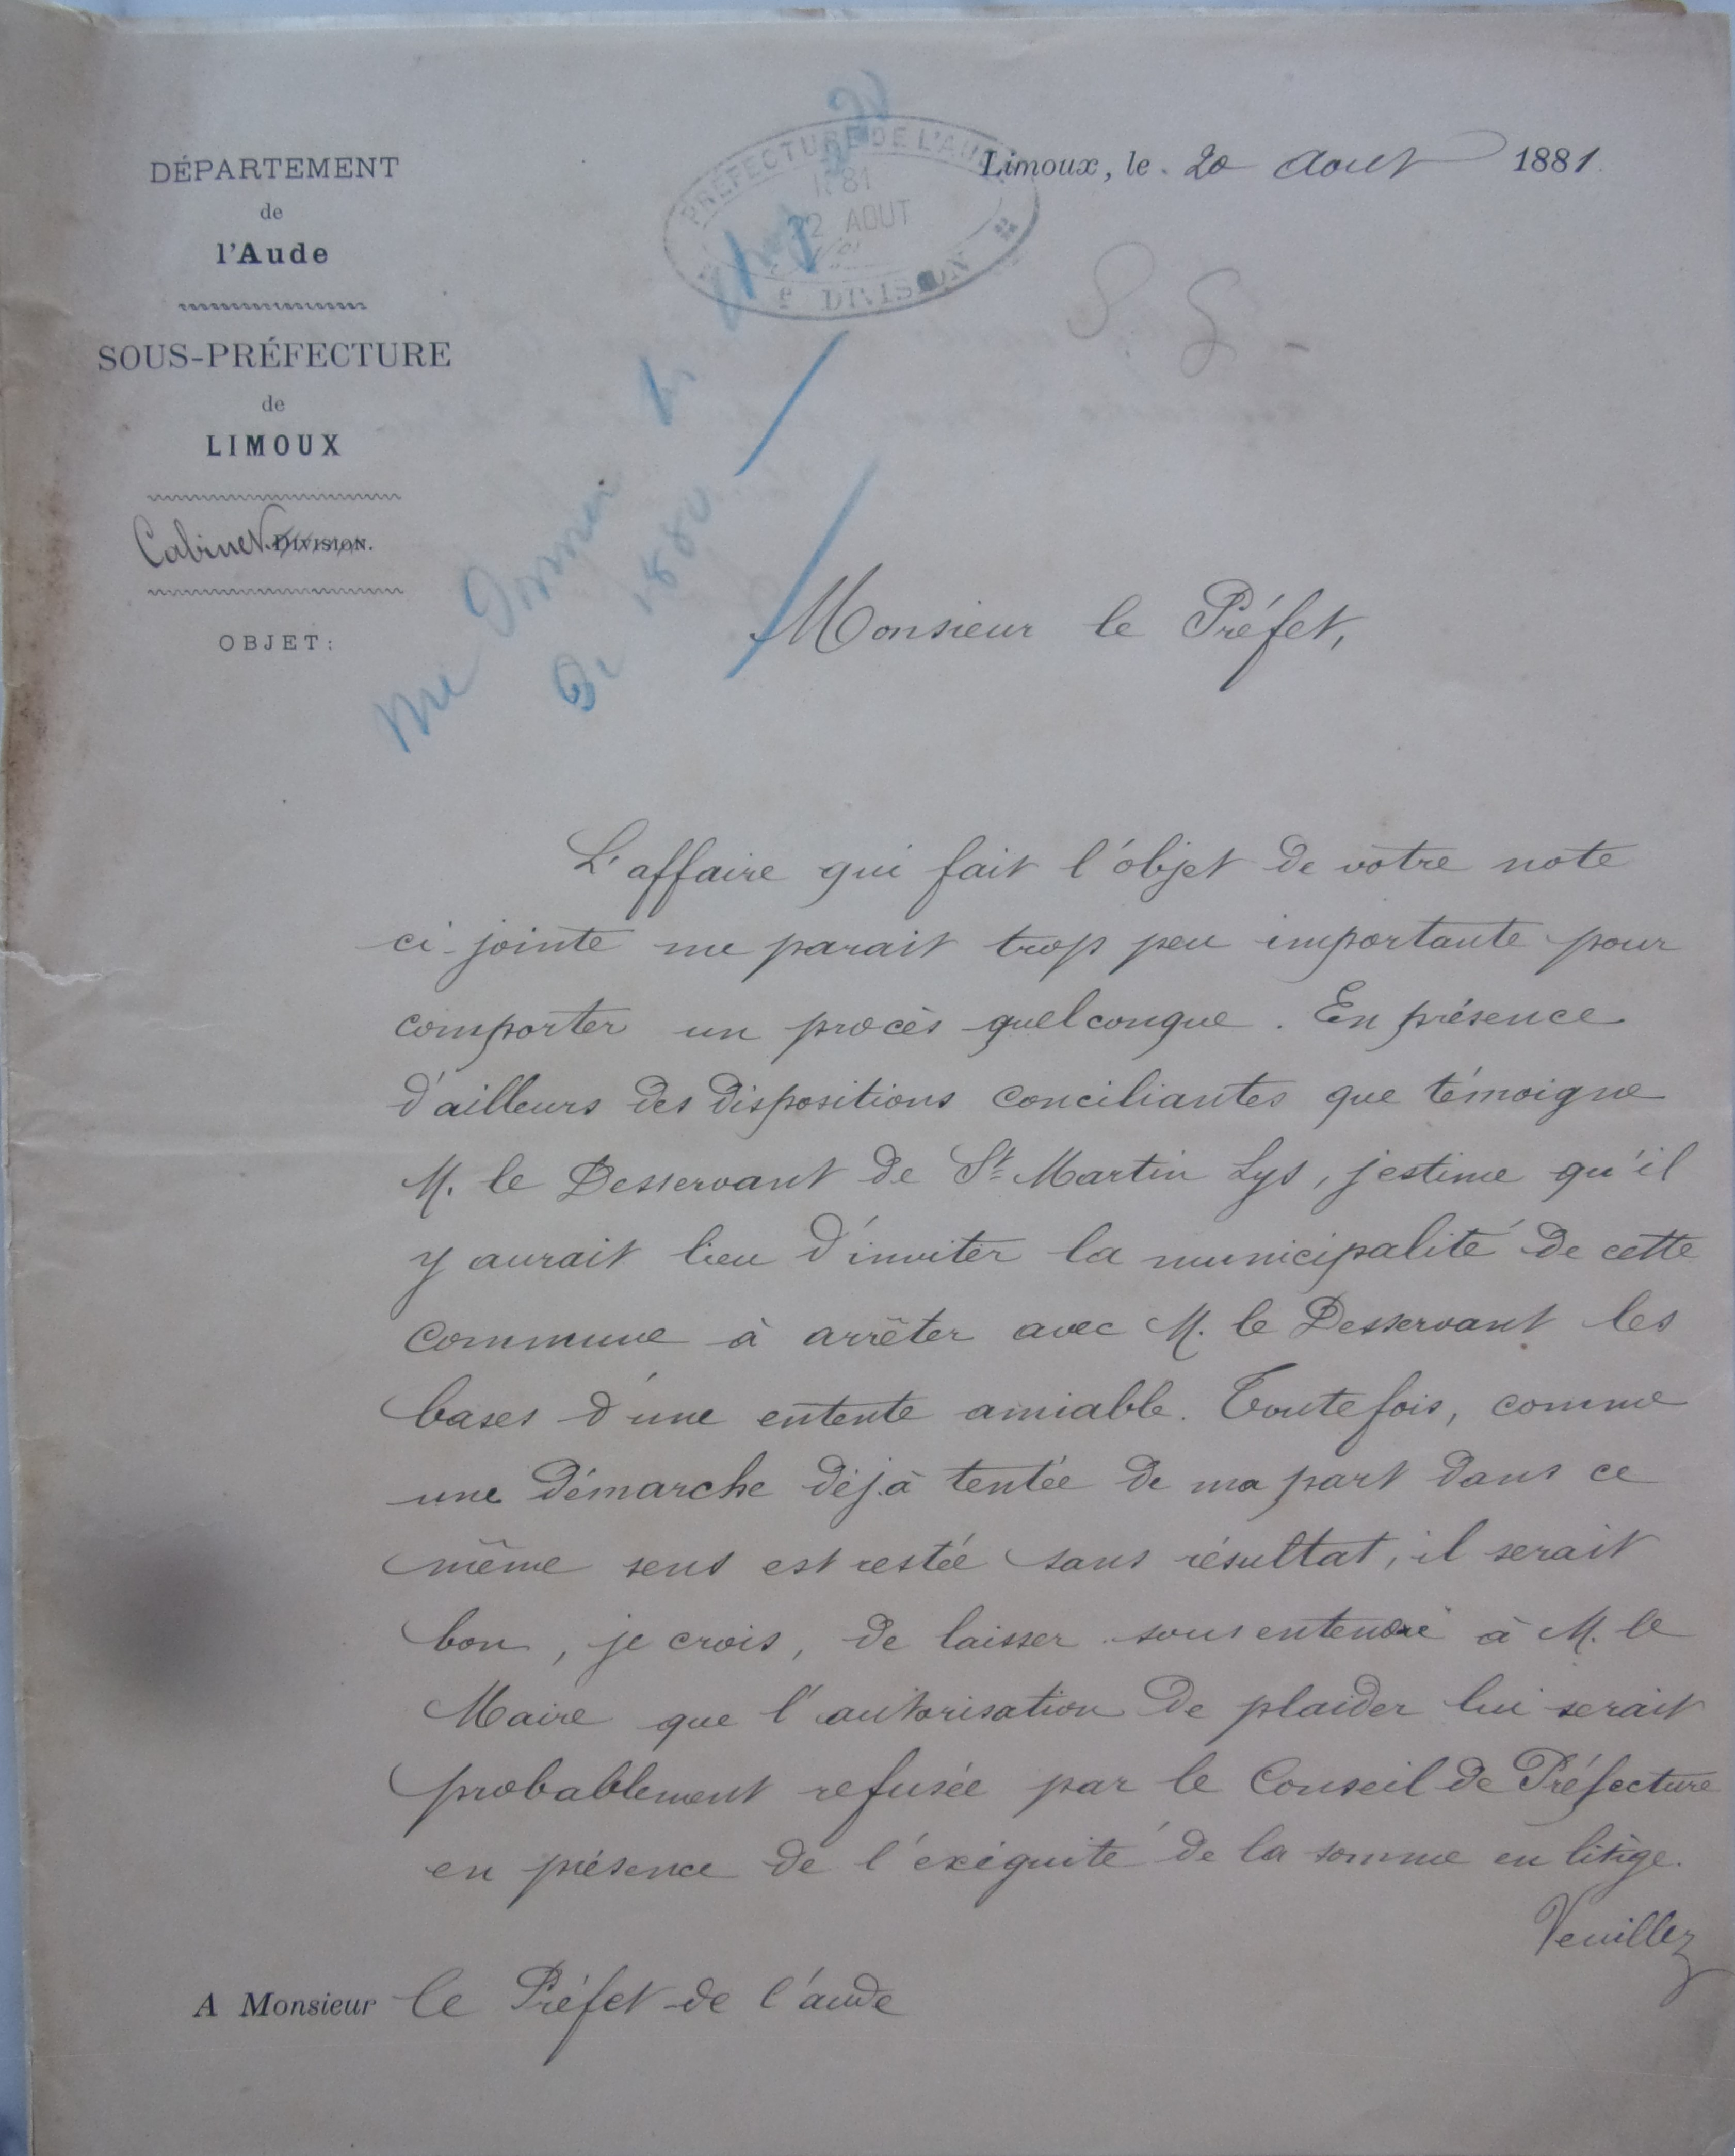 DÉPARTEMENT
de
l'Aude
SOUS-PRÉFECTURE
de
LIMOUX
Cabinet DIVISION.
OBJET:
PRÉFECTURE DE L'AUDE
1881
22 AOUT
e DIVISION
Limoux, le 20 Aout 1881.
S. G.
me donner
De 1880
Monsieur le Préfet,
L'affaire qui fait l'objet de votre note
ci-jointe me parait trop peu importante pour
comporter un procès quelconque. En présence
d'ailleurs des dispositions conciliantes que témoigne
M. le Desservant de St Martin Lys, j'estime qu'il
y aurait lieu d'inviter la municipalité de cette
commune à arrêter avec M. le Desservant les
bases d'une entente amiable. Toutefois, comme
une démarche déjà tentée de ma part dans ce
même sens est restée sans résultat, il serait
bon, je crois, de laisser sous entendre à M. le
Maire que l'autorisation de plaider lui serait
probablement refusée par le Conseil de Préfecture
en présence de l'exiguité de la somme en litige.
Veuillez
A Monsieur le Préfet de l'aude